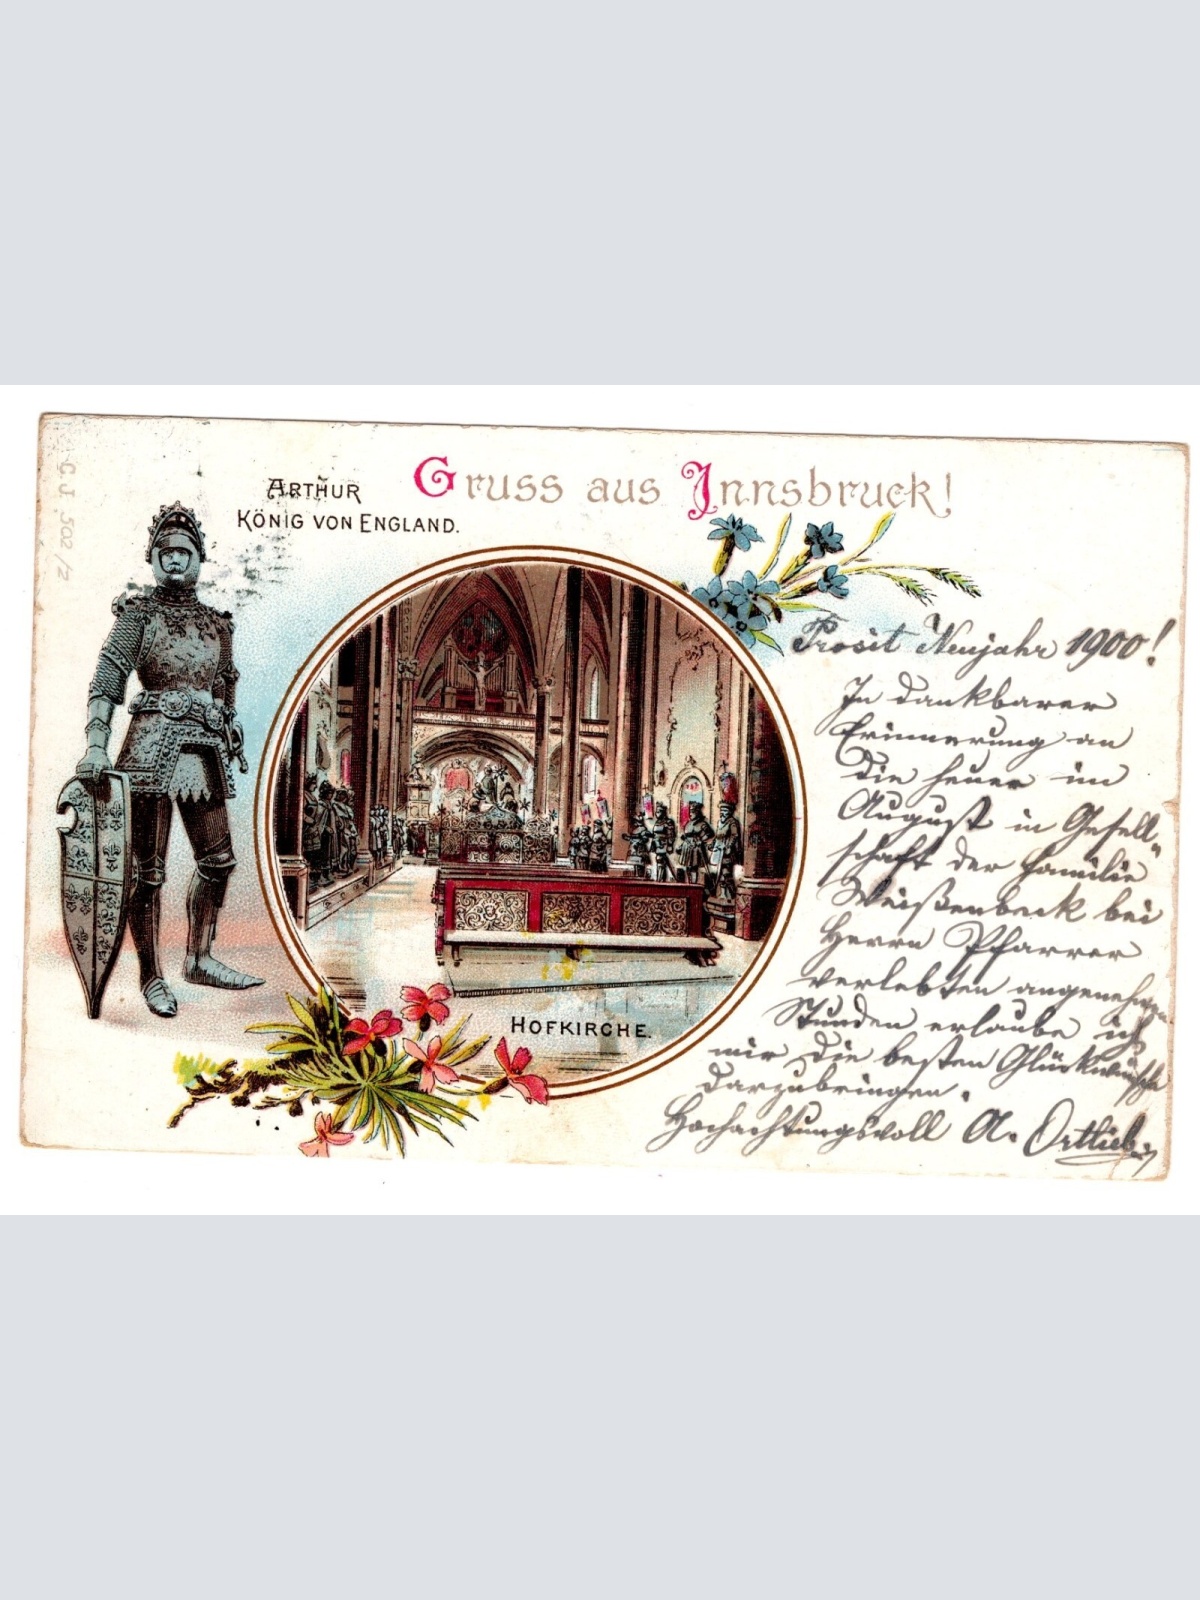 C.J. 502/2
ARTHUR
KÖNIG VON ENGLAND.
Gruss aus Innsbruck!
HOFKIRCHE.
Prosit Neujahr 1900!
In dankbarer
Erinnerung an
die heuer im
August in Gesell-
schaft der Familie
Weißenbeck bei
Herrn Pfarrer
verlebten angenehmen
Stunden erlaube ich
mir die besten Glückwünsche
darzubringen.
Hochachtungsvoll A. Ortlieb